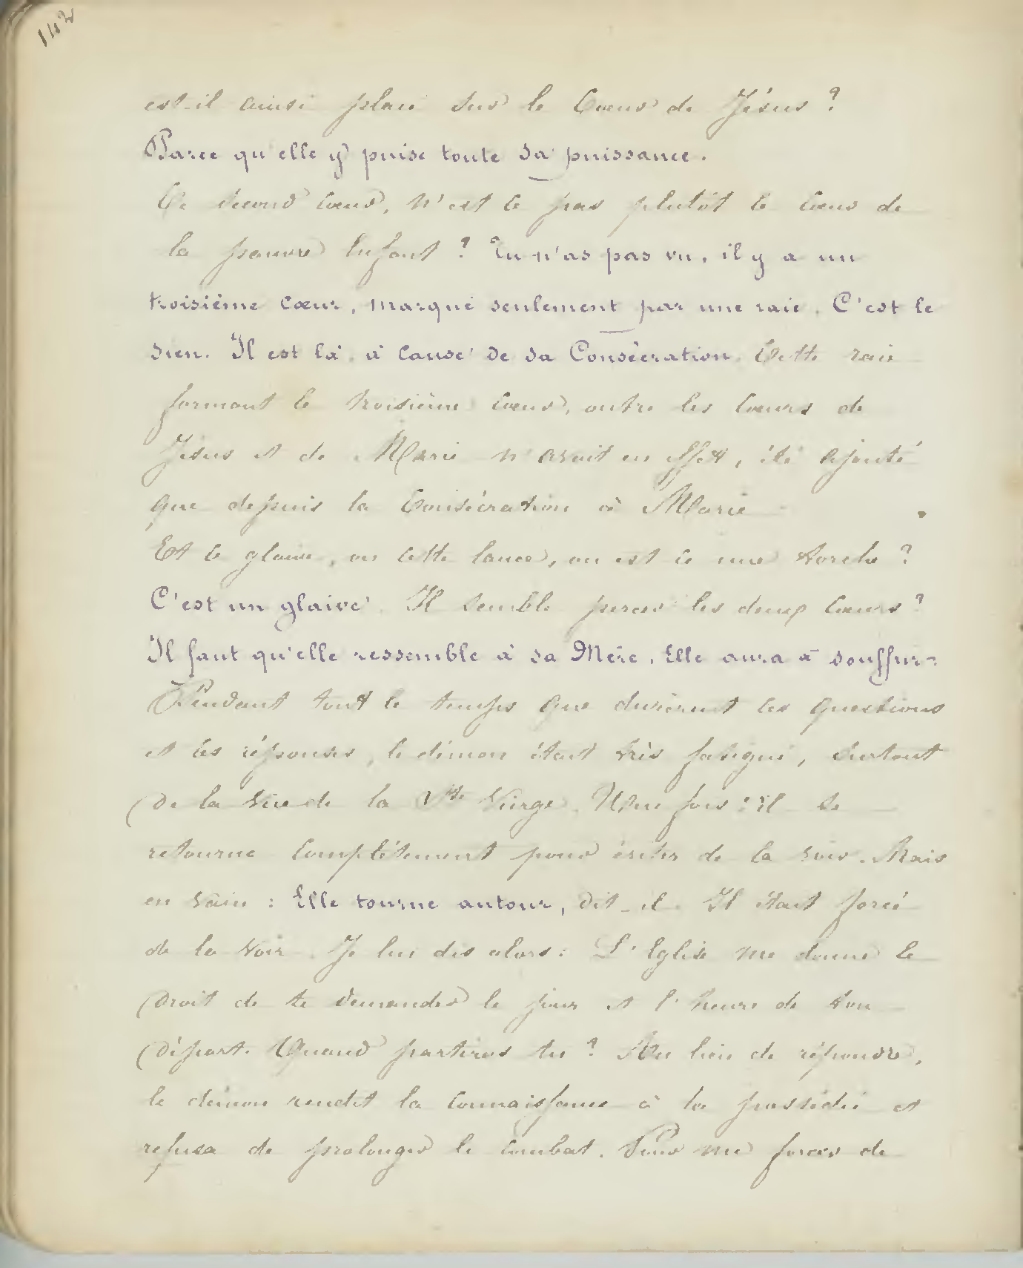 142
est-il ainsi placé sur le Coeur de Jésus ?
Parce qu'elle y puise toute sa puissance.
Ce second Coeur, n'est ce pas plutôt le Coeur de
la pauvre Enfant ? Tu n'as pas vu, il y a un
troisième Cœur, marqué seulement par une raie. C'est le
sien. Il est là, à cause de sa Consécration. Cette raie
formant le troisième Coeur, outre les Coeurs de
Jésus et de Marie n'avait en effet, été ajouté
que depuis la Consécration à Marie
Et ce glaive, ou cette lance, ou est ce une torche ?
C'est un glaive. Il semble percer les deux Coeurs ?
Il faut qu'elle ressemble à sa Mère. Elle aura à souffrir.
Pendant tout le temps que durèrent les questions
et les réponses, le démon était très fatigué, surtout
de la vue de la Ste Vierge. Une fois : il se
retourne complètement pour éviter de la voir. Mais
en vain : Elle tourne autour, dit-il. Il était forcé
de la voir. Je lui dis alors : L'Eglise me donne le
droit de te demander le jour et l'heure de ton
départ. Quand partiras tu ? Au lieu de répondre,
le démon rendit la connaissance à la possédée et
refusa de prolonger le combat. Pour me forcer de